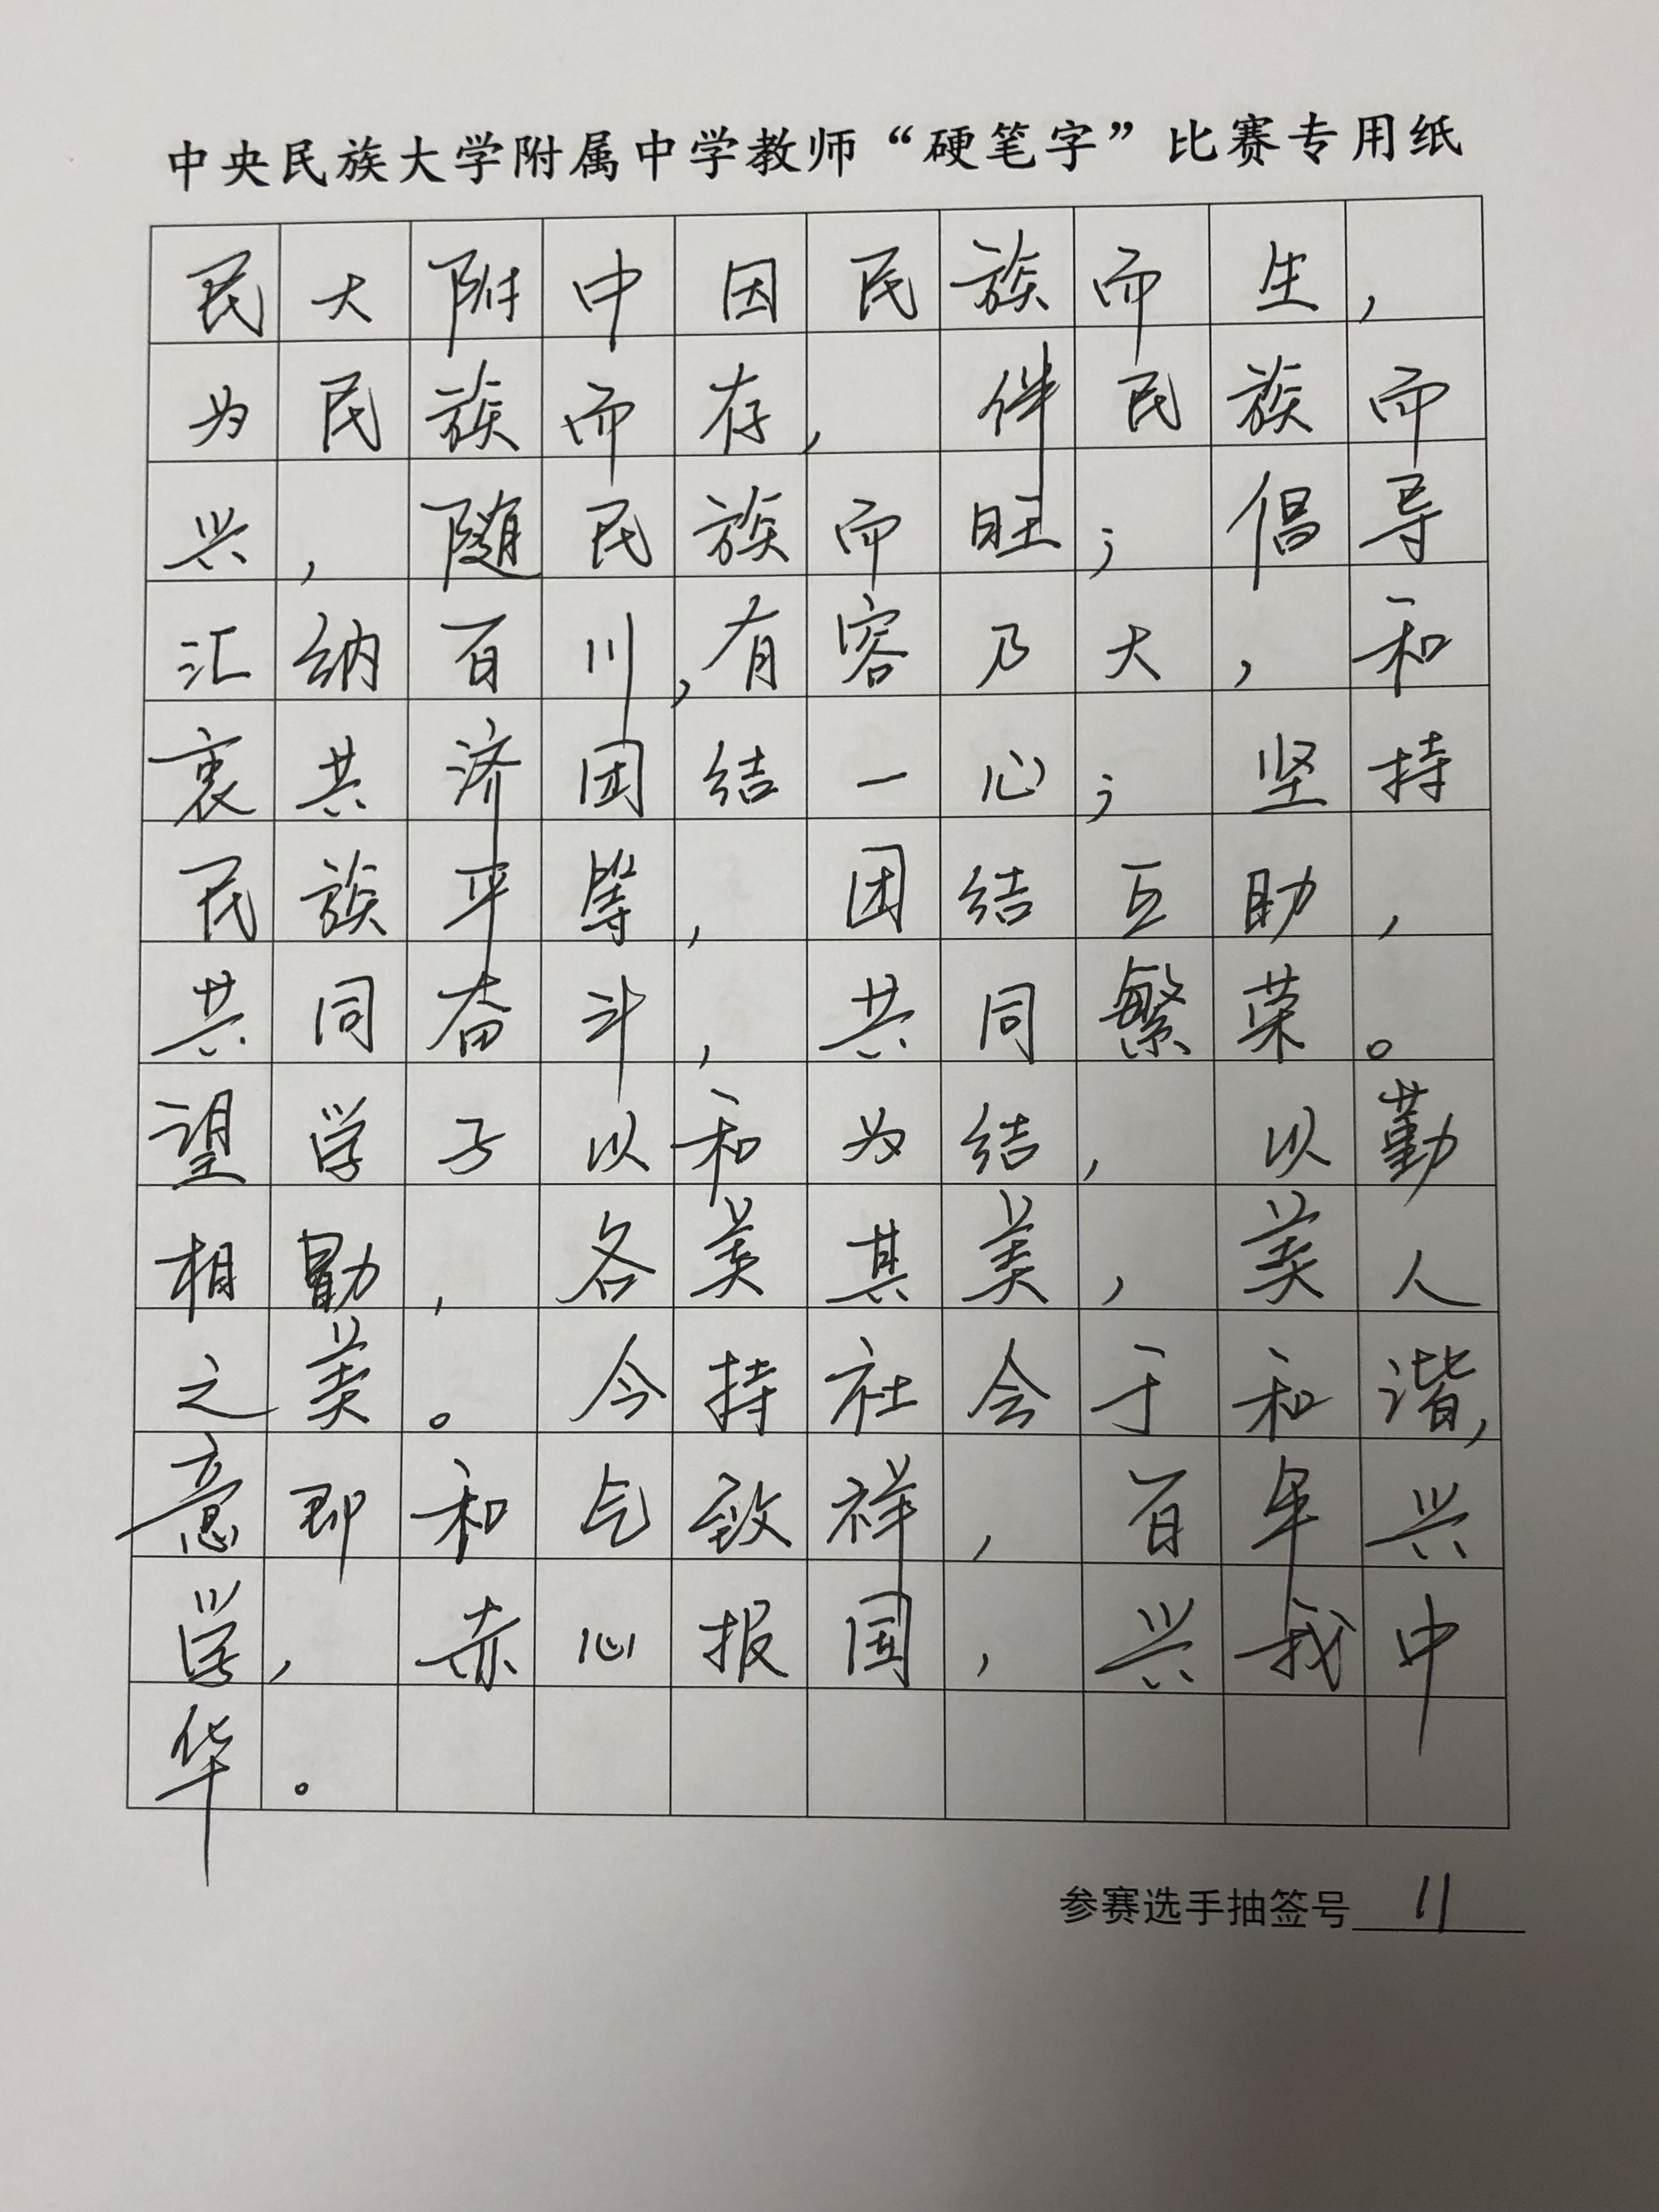 中央民族大学附属中学教师“硬笔字”比赛专用纸
民大附中因民族而生，
为民族而存，伴民族而
兴，随民族而旺；倡导
汇纳百川，有容乃大，和
衷共济团结一心；坚持
民族平等，团结互助，
共同奋斗，共同繁荣。
望学子以和为结，以勤
相勖，各美其美，美人
之美。今持社会于和谐，
意即和气致祥，百年兴
学，赤心报国，兴我中
华。
参赛选手抽签号 11